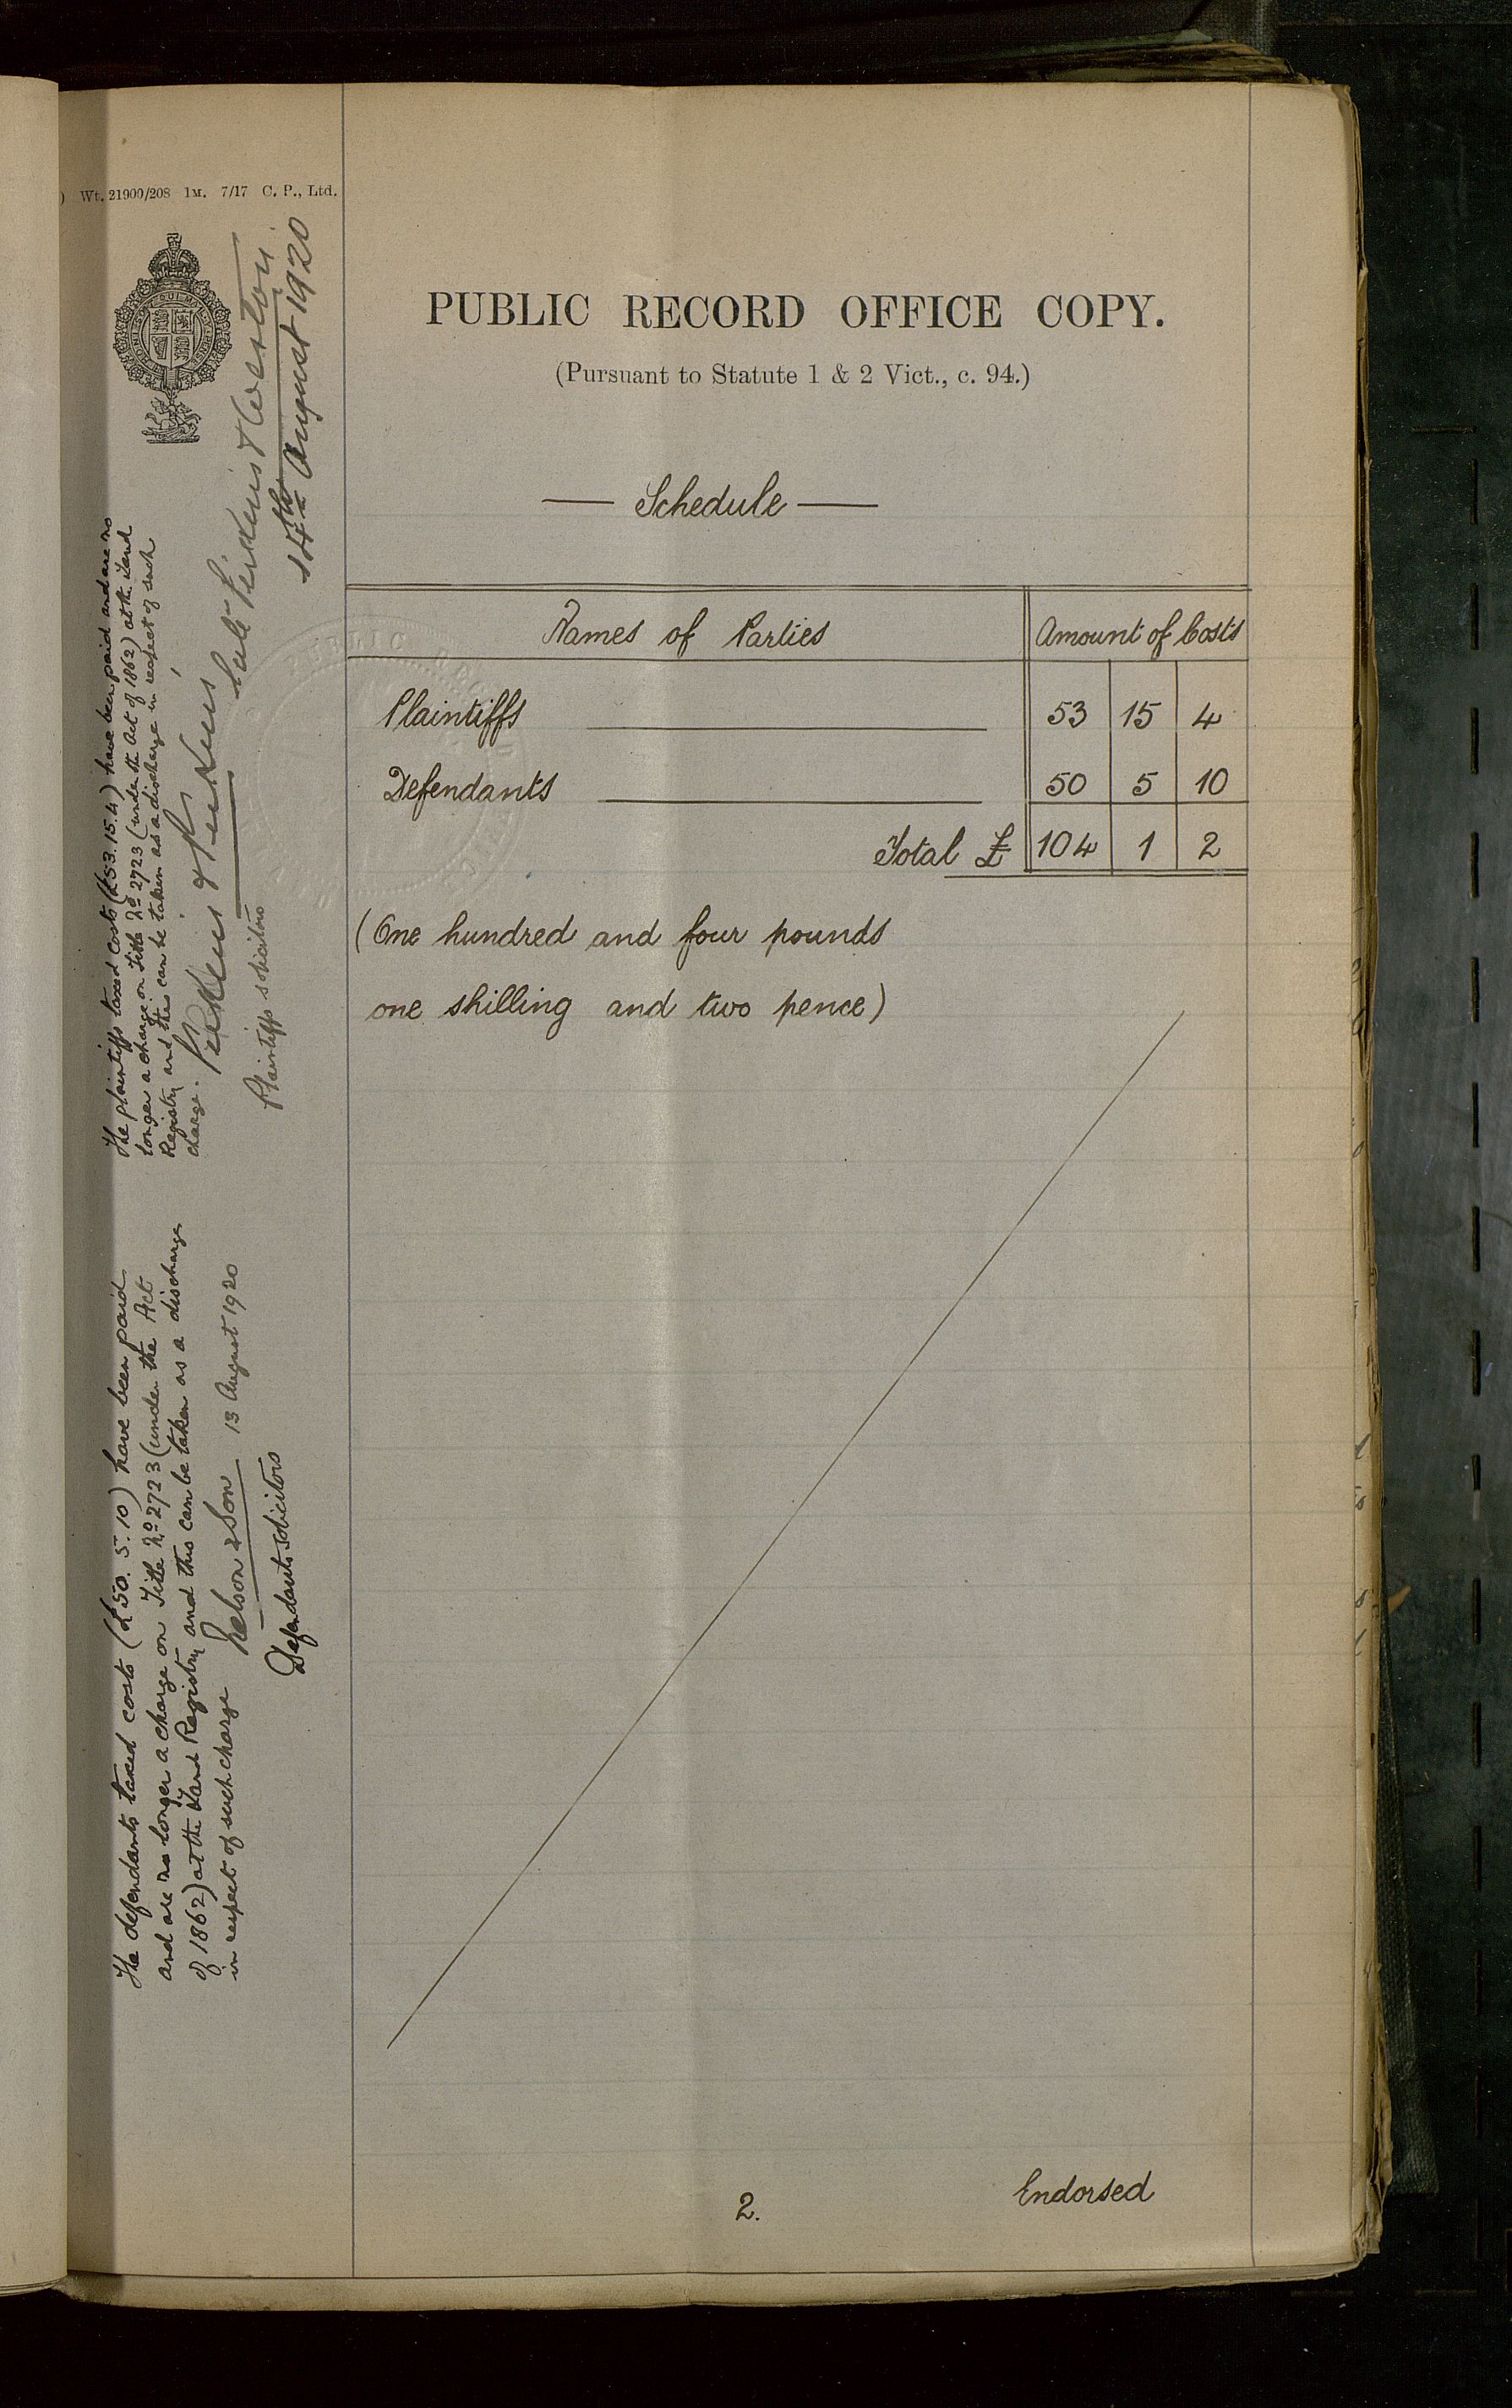 Wt. 21900/208 1M. 7/17 C. P., Ltd.
PUBLIC RECORD OFFICE COPY.
(Pursuant to Statute 1 & 2 Vict., c. 94.)
— Schedule —
Names of Parties Amount of Costs
Plaintiffs 53 15 4
Defendants 50 5 10
Total £ 104 1 2
(One hundred and four pounds
one shilling and two pence)
2.
Endorsed
The plaintiffs taxed costs (£53.15.4) have been paid and are no
longer a charge on Title No 2723 (under the Act of 1862) at the Land
Registry and this can be taken as a discharge in respect of such
charge.
Perkins & Perkins
late Perkins & Weston
Plaintiffs solicitors
14th August 1920
The defendants taxed costs (£50. 5. 10) have been paid
and are no longer a charge on Title No 2723 (under the Act
of 1862) at the Land Registry and this can be taken as a discharge
in respect of such charge
Nelson & Son 13 August 1920
Defendants solicitors